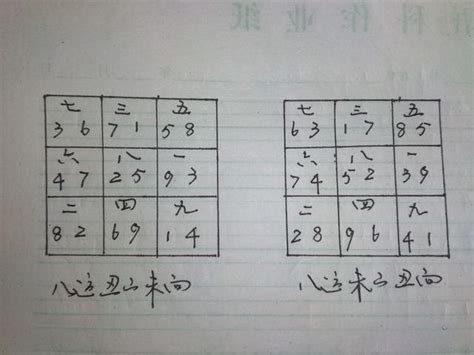 科作业纸
七 三 五
3 6 7 1 5 8
六 八 一
4 7 2 5 9 3
二 四 九
8 2 6 9 1 4
八运丑山未向
七 三 五
6 3 1 7 8 5
六 八 一
7 4 5 2 3 9
二 四 九
2 8 9 6 4 1
八运未山丑向